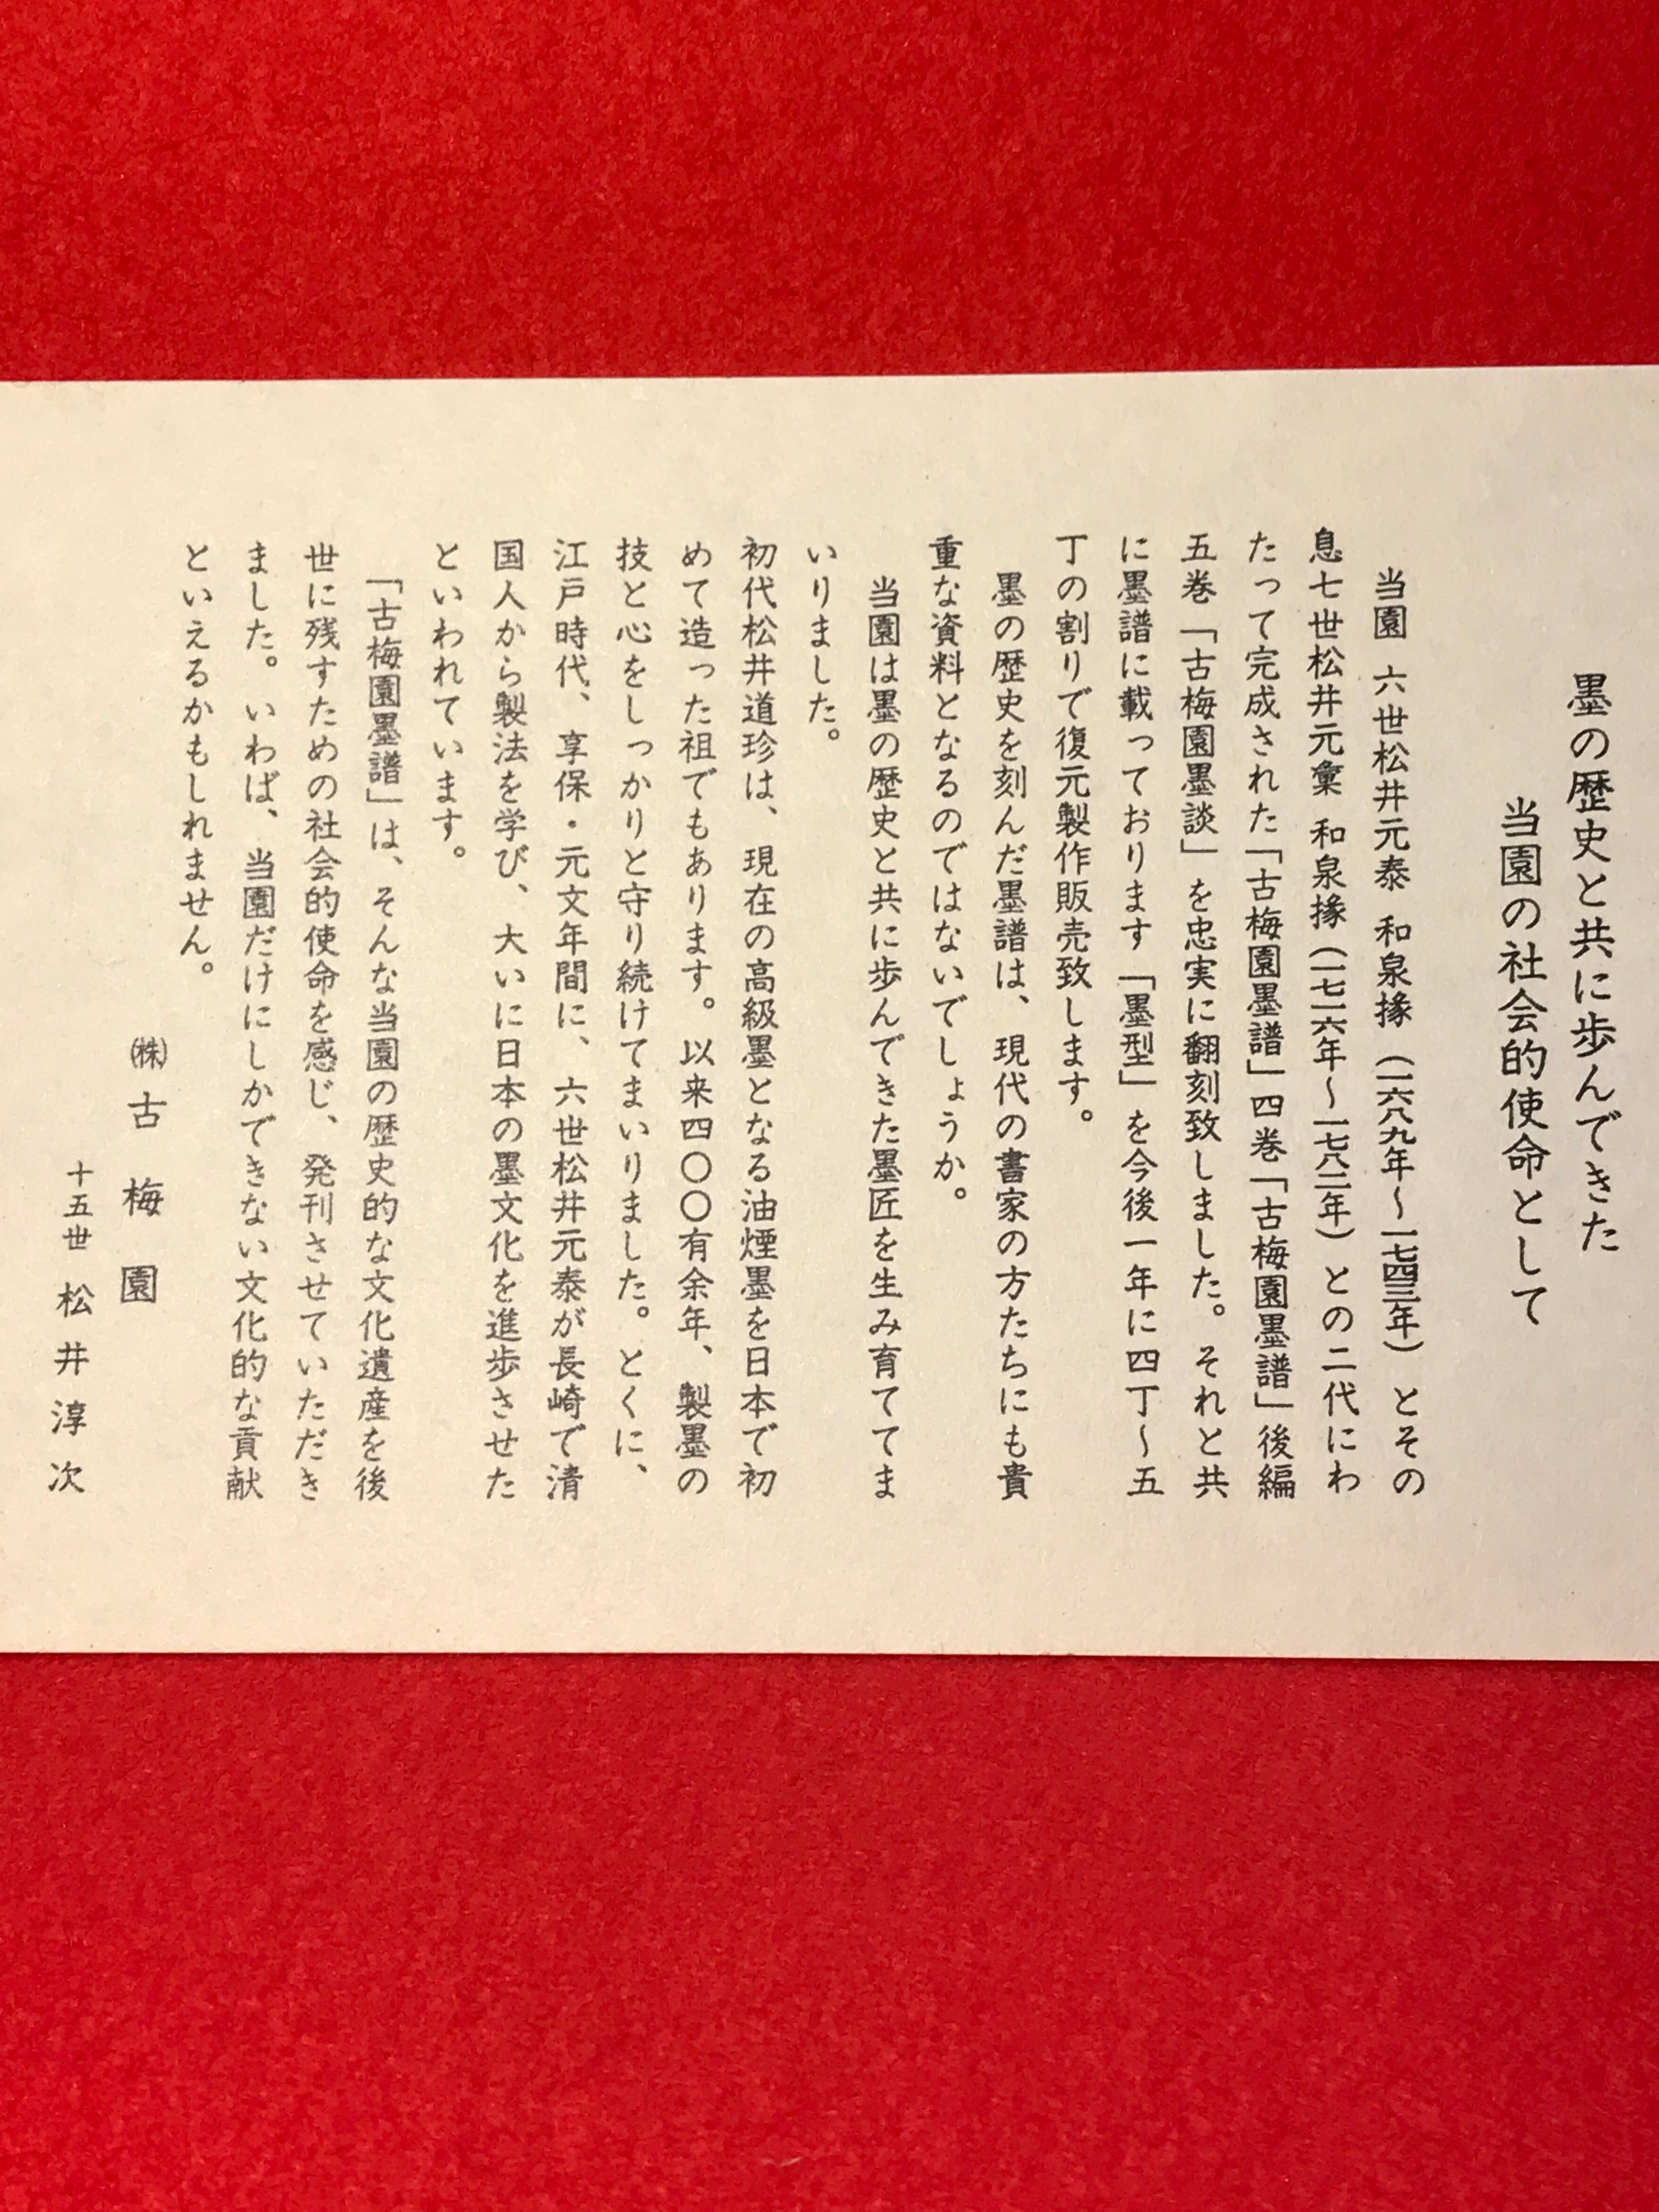 墨の歴史と共に歩んできた
当園の社会的使命として
当園 六世松井元泰 和泉掾（一六八九年～一七四三年）とその
息七世松井元彙 和泉掾（一七一六年～一七八二年）との二代にわ
たって完成された「古梅園墨譜」四巻「古梅園墨譜」後編
五巻「古梅園墨談」を忠実に翻刻致しました。それと共
に墨譜に載っております「墨型」を今後一年に四丁～五
丁の割りで復元製作販売致します。
墨の歴史を刻んだ墨譜は、現代の書家の方たちにも貴
重な資料となるのではないでしょうか。
当園は墨の歴史と共に歩んできた墨匠を生み育ててま
いりました。
初代松井道珍は、現在の高級墨となる油煙墨を日本で初
めて造った祖でもあります。以来四〇〇有余年、製墨の
技と心をしっかりと守り続けてまいりました。とくに、
江戸時代、享保・元文年間に、六世松井元泰が長崎で清
国人から製法を学び、大いに日本の墨文化を進歩させた
といわれています。
「古梅園墨譜」は、そんな当園の歴史的な文化遺産を後
世に残すための社会的使命を感じ、発刊させていただき
ました。いわば、当園だけにしかできない文化的な貢献
といえるかもしれません。
㈱古梅園
十五世 松井淳次